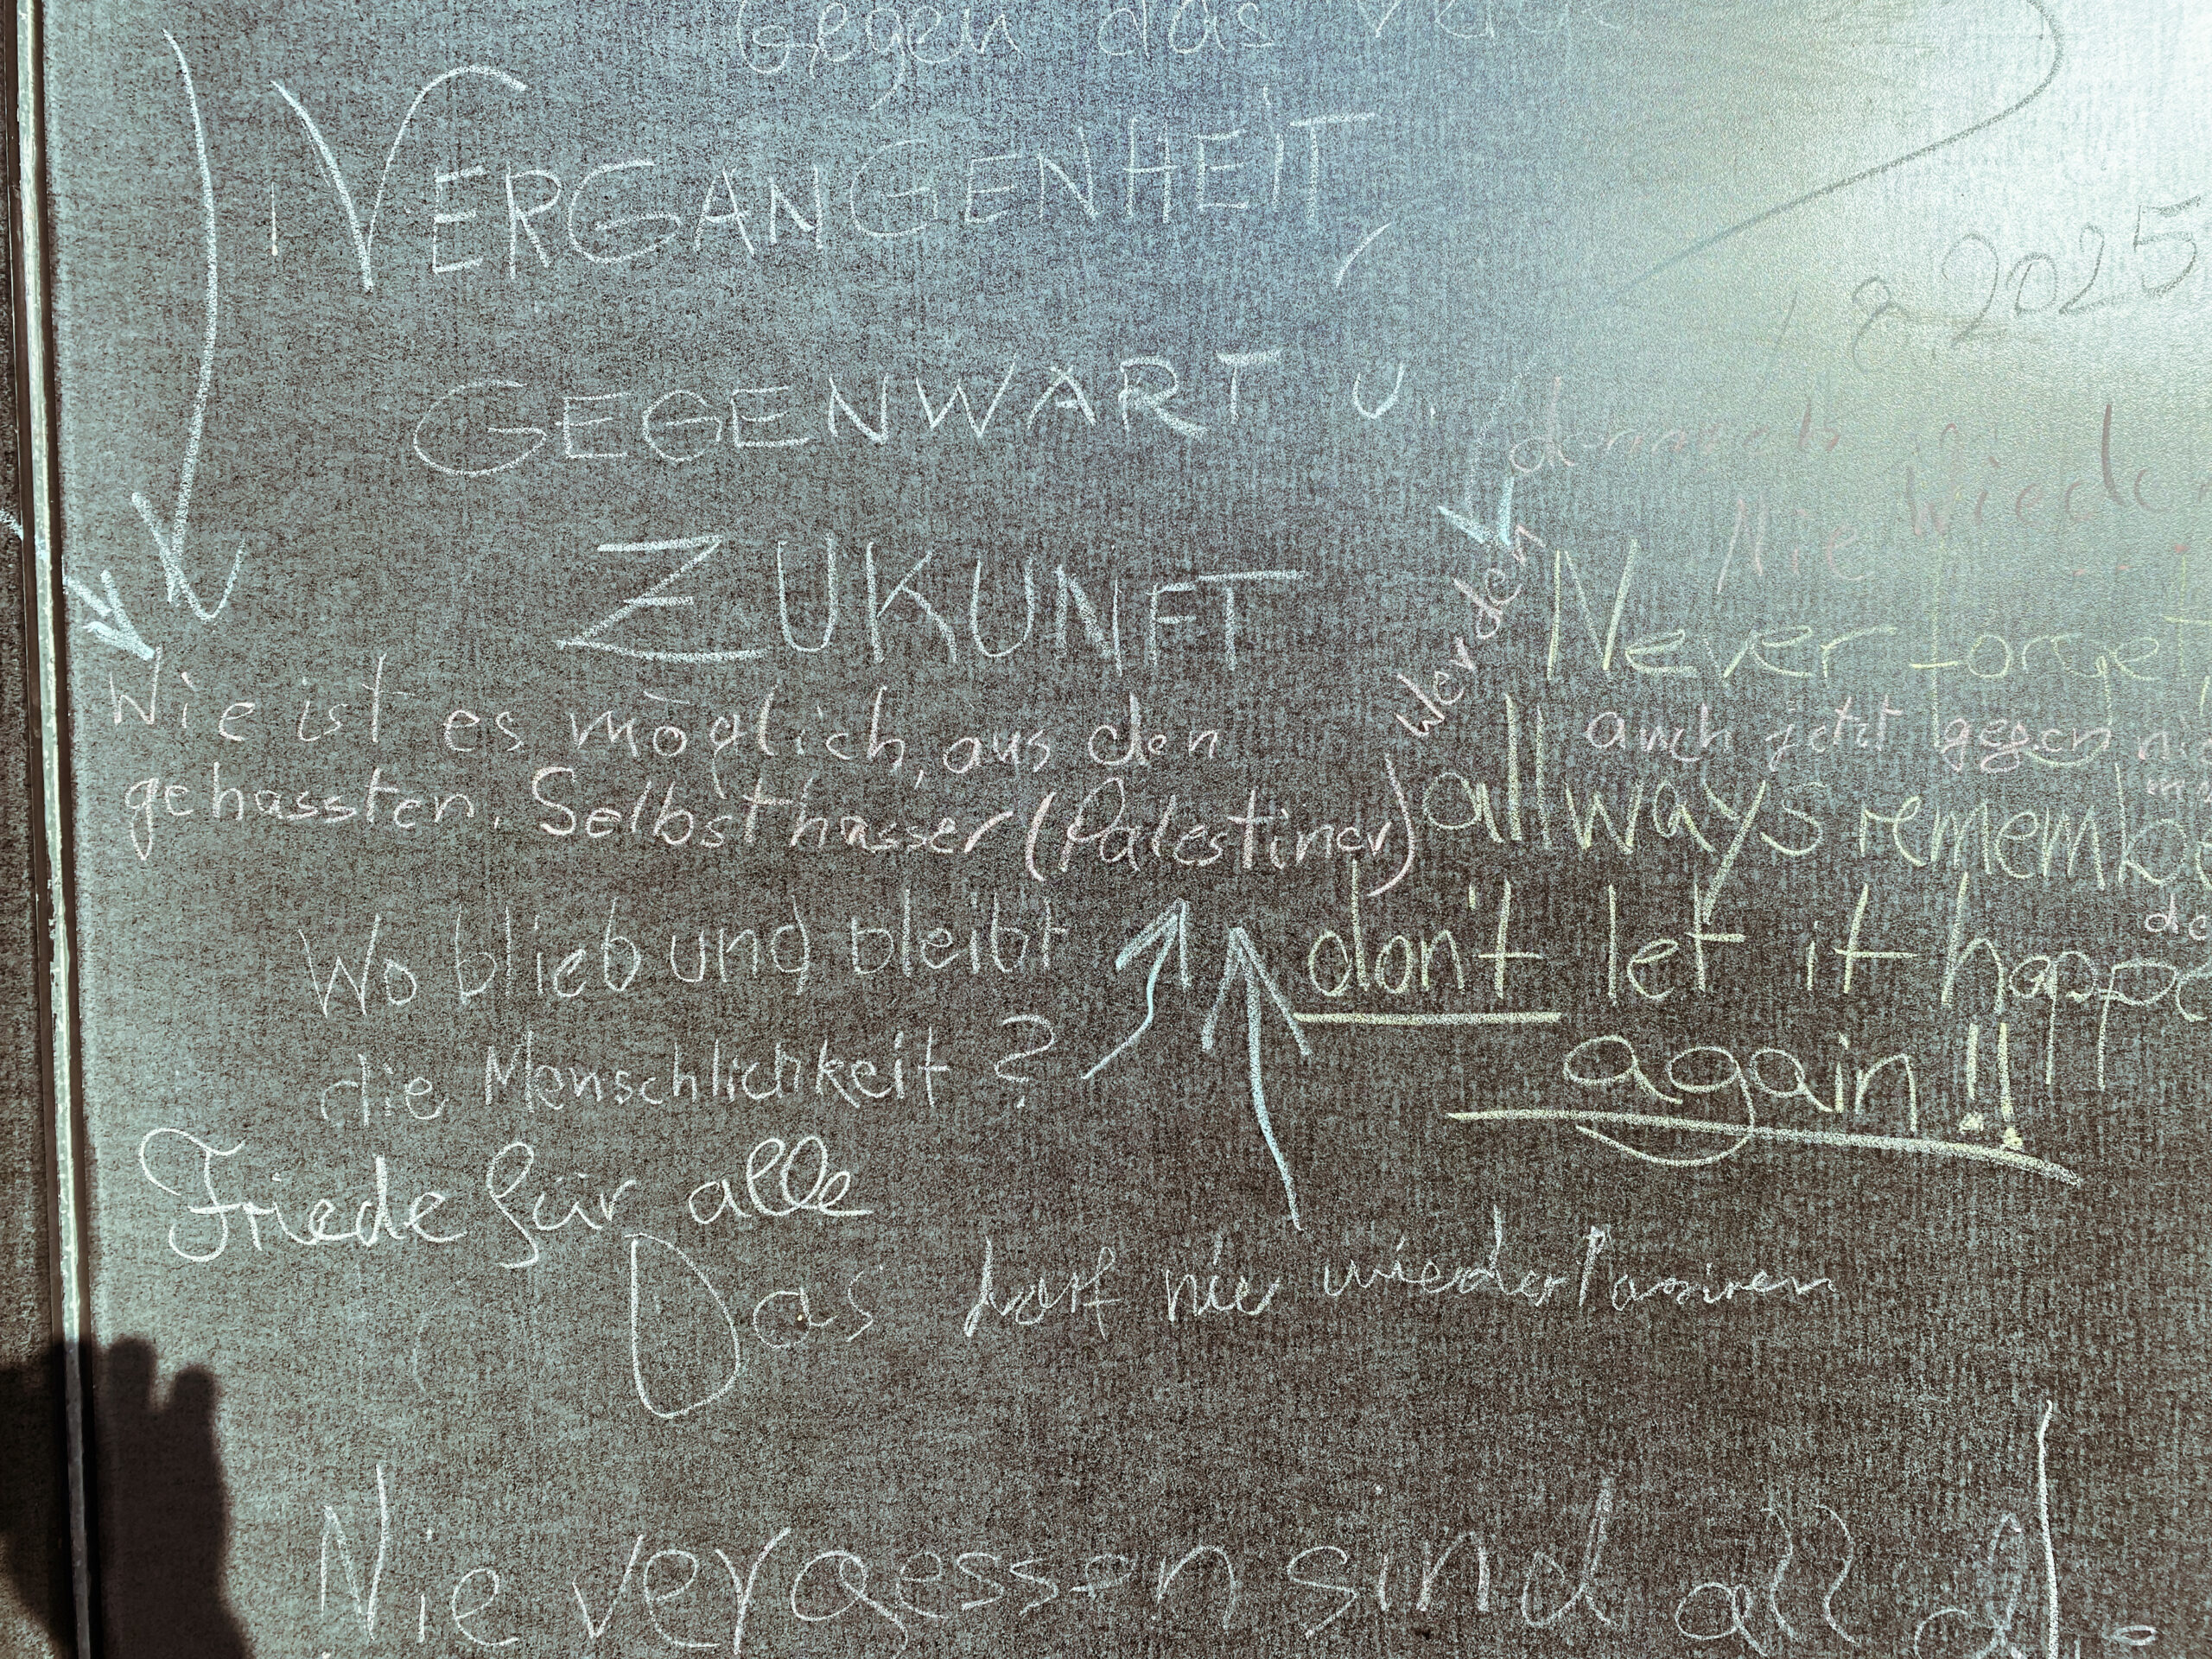 Gegen das
VERGANGENHEIT,
GEGENWART U.
ZUKUNFT
2025
damals
Nie wied
Never forget
auch jetzt gegen
allways remembe
don't let it happe
again!!
Wie ist es möglich, aus den
gehassten, Selbsthasser (Palestiner) werden
Wo blieb und bleibt
die Menschlichkeit?
Friede für alle
Das darf nie wieder
Nie vergessen sind all die